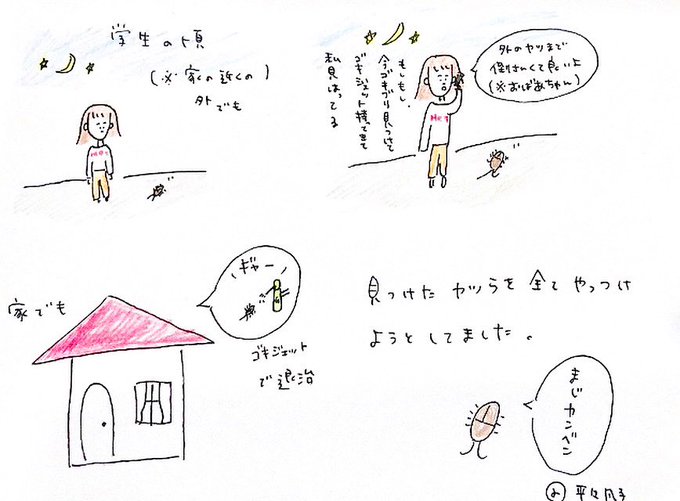 学生の頃
(※家の近くの)
外でも
もしもし、
今ゴキブリ見つけて
ゴキジェット持ってきて
私見はってる
外のヤツまで
倒さんくて良いよ
(※おばあちゃん)
家でも
ギャー
ゴキジェット
で退治
見つけたヤツらを全てやっつけ
ようとしてました。
まじカンベン